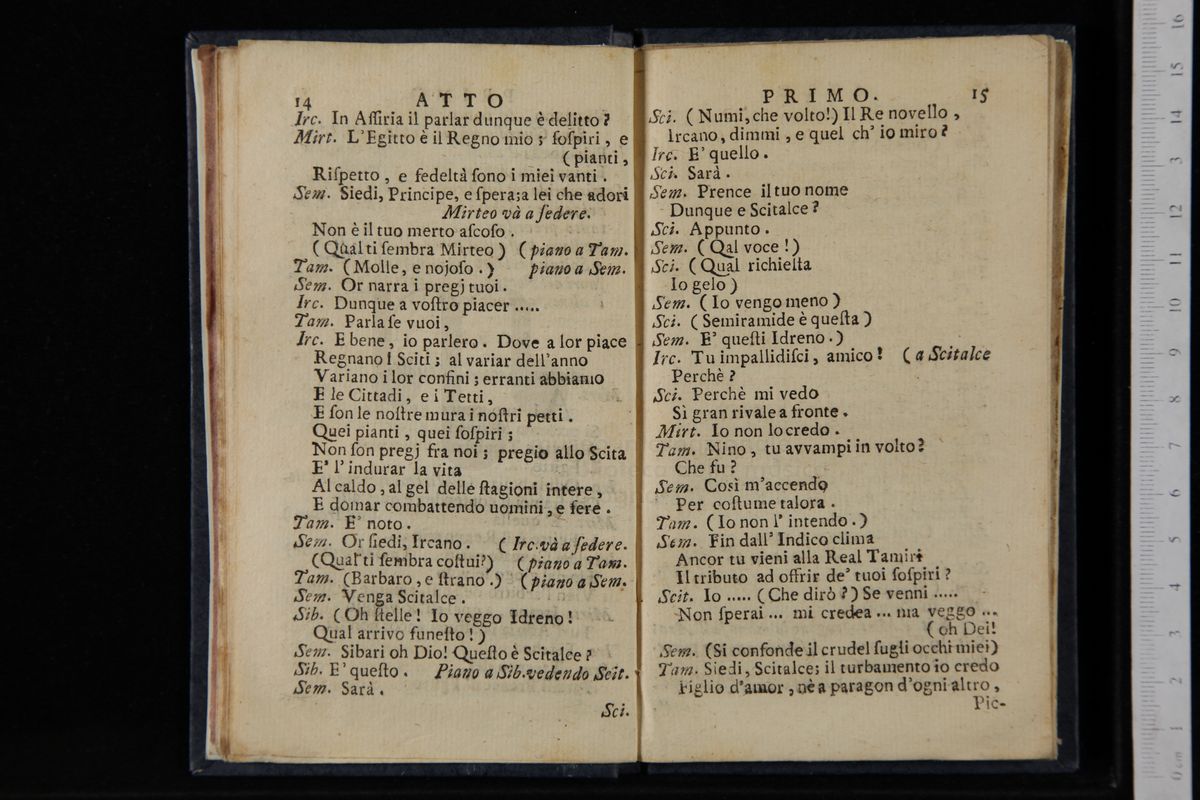 14 ATTO
Irc. In Aſſiria il parlar dunque è delitto?
Mirt. L'Egitto è il Regno mio; ſoſpiri, e
(pianti,
Riſpetto, e fedeltà ſono i miei vanti.
Sem. Siedi, Principe, e ſpera; a lei che adori
Mirteo và a ſedere.
Non è il tuo merto aſcoſo.
(Qual ti ſembra Mirteo) (piano a Tam.
Tam. (Molle, e nojoſo.) piano a Sem.
Sem. Or narra i pregj tuoi.
Irc. Dunque a voſtro piacer .....
Tam. Parla ſe vuoi,
Irc. E bene, io parlero. Dove a lor piace
Regnano I Sciti; al variar dell'anno
Variano i lor confini; erranti abbiamo
E le Cittadi, e i Tetti,
E ſon le noſtre mura i noſtri petti.
Quei pianti, quei ſoſpiri;
Non ſon pregj fra noi; pregio allo Scita
E' l'indurar la vita
Al caldo, al gel delle ſtagioni intere,
E domar combattendo uomini, e fere.
Tam. E' noto.
Sem. Or ſiedi, Ircano. (Irc. và a ſedere.
(Qual ti ſembra coſtui?) (piano a Tam.
Tam. (Barbaro, e ſtrano.) (piano a Sem.
Sem. Venga Scitalce.
Sib. (Oh ſtelle! Io veggo Idreno!
Qual arrivo funeſto!)
Sem. Sibari oh Dio! Queſto è Scitalce?
Sib. E' queſto. Piano a Sib. vedendo Scit.
Sem. Sarà.
Sci.
PRIMO. 15
Sci. (Numi, che volto!) Il Re novello,
Ircano, dimmi, e quel ch' io miro?
Irc. E' quello.
Sci. Sarà.
Sem. Prence il tuo nome
Dunque e Scitalce?
Sci. Appunto.
Sem. (Qal voce!)
Sci. (Qual richieſta
Io gelo)
Sem. (Io vengo meno)
Sci. (Semiramide è queſta)
Sem. E' queſti Idreno.)
Irc. Tu impallidiſci, amico! (a Scitalce
Perchè?
Sci. Perchè mi vedo
Sì gran rivale a fronte.
Mirt. Io non lo credo.
Tam. Nino, tu avvampi in volto?
Che fu?
Sem. Così m'accendo
Per coſtume talora.
Tam. (Io non l' intendo.)
Sem. Fin dall' Indico clima
Ancor tu vieni alla Real Tamiri
Il tributo ad offrir de' tuoi ſoſpiri?
Scit. Io ..... (Che dirò?) Se venni .....
Non ſperai ... mi credea ... ma veggo ...
(oh Dei!
Sem. (Si confonde il crudel ſugli occhi miei)
Tam. Siedi, Scitalce; il turbamento io credo
Figlio d'amor, nè a paragon d'ogni altro,
Pic-